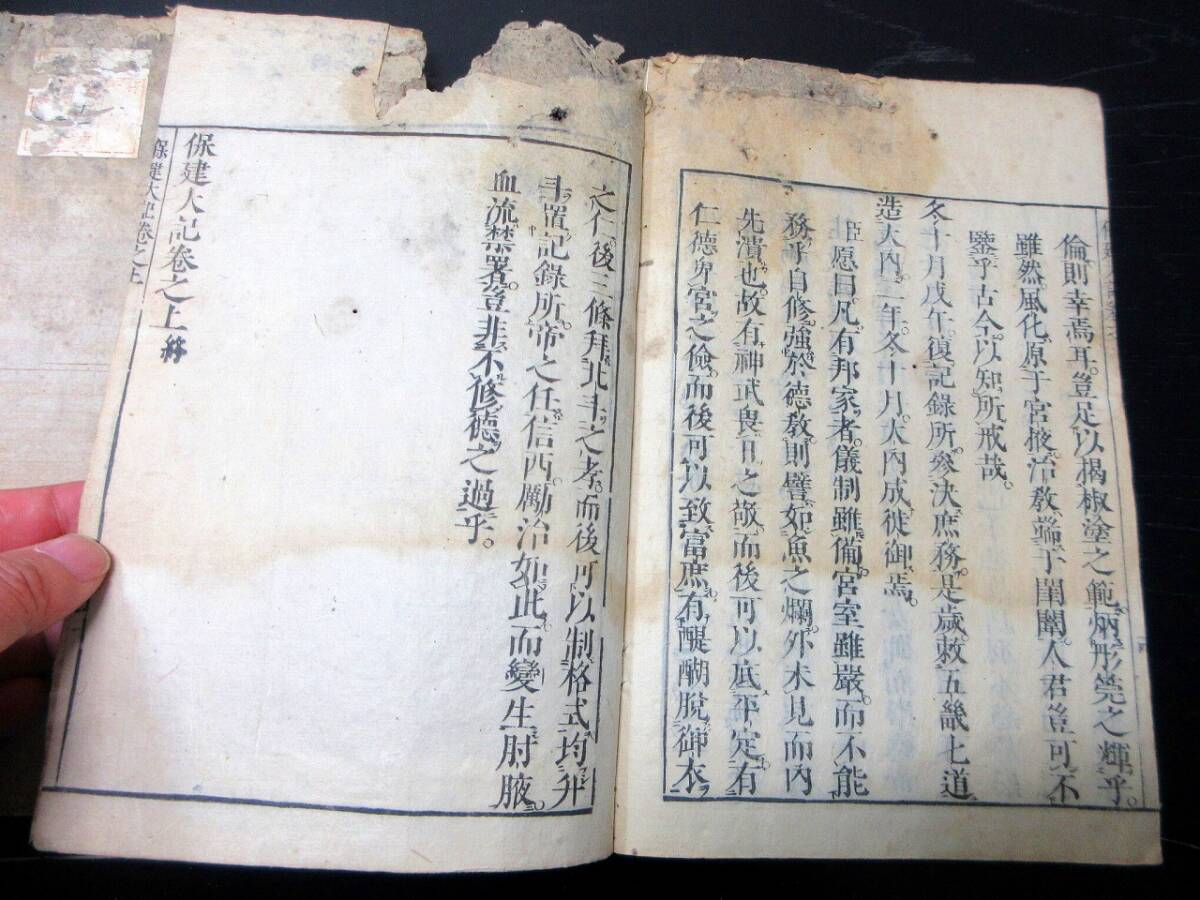 倫則幸焉耳。豈足以揭椒塗之範。炳彤筦之輝乎。
雖然。風化原于宮掖。治教端于閨閫。人君豈可不
鑒乎古今。以知所戒哉。
冬十月戊午。復記錄所。參決庶務。是歲敕五畿七道
造大內。二年。冬十月。大內成。徙御焉。
臣愿曰。凡有邦家者。儀制雖備。宮室雖嚴。而不能
務乎自修。強於德教。則譬如魚之爛。外未見而內
先潰也。故有神武畏日之敬。而後可以底平定。有
仁德卑宮之儉。而後可以致富庶。有醍醐脫御衣
之仁。後三條拜北斗之孝。而後可以制格式。均舛
斗。置記錄所。帝之任信西。勵治如此。而變生肘腋。
血流禁署。豈非不修德之過乎。
保建大記卷之上終
保建大記卷之上